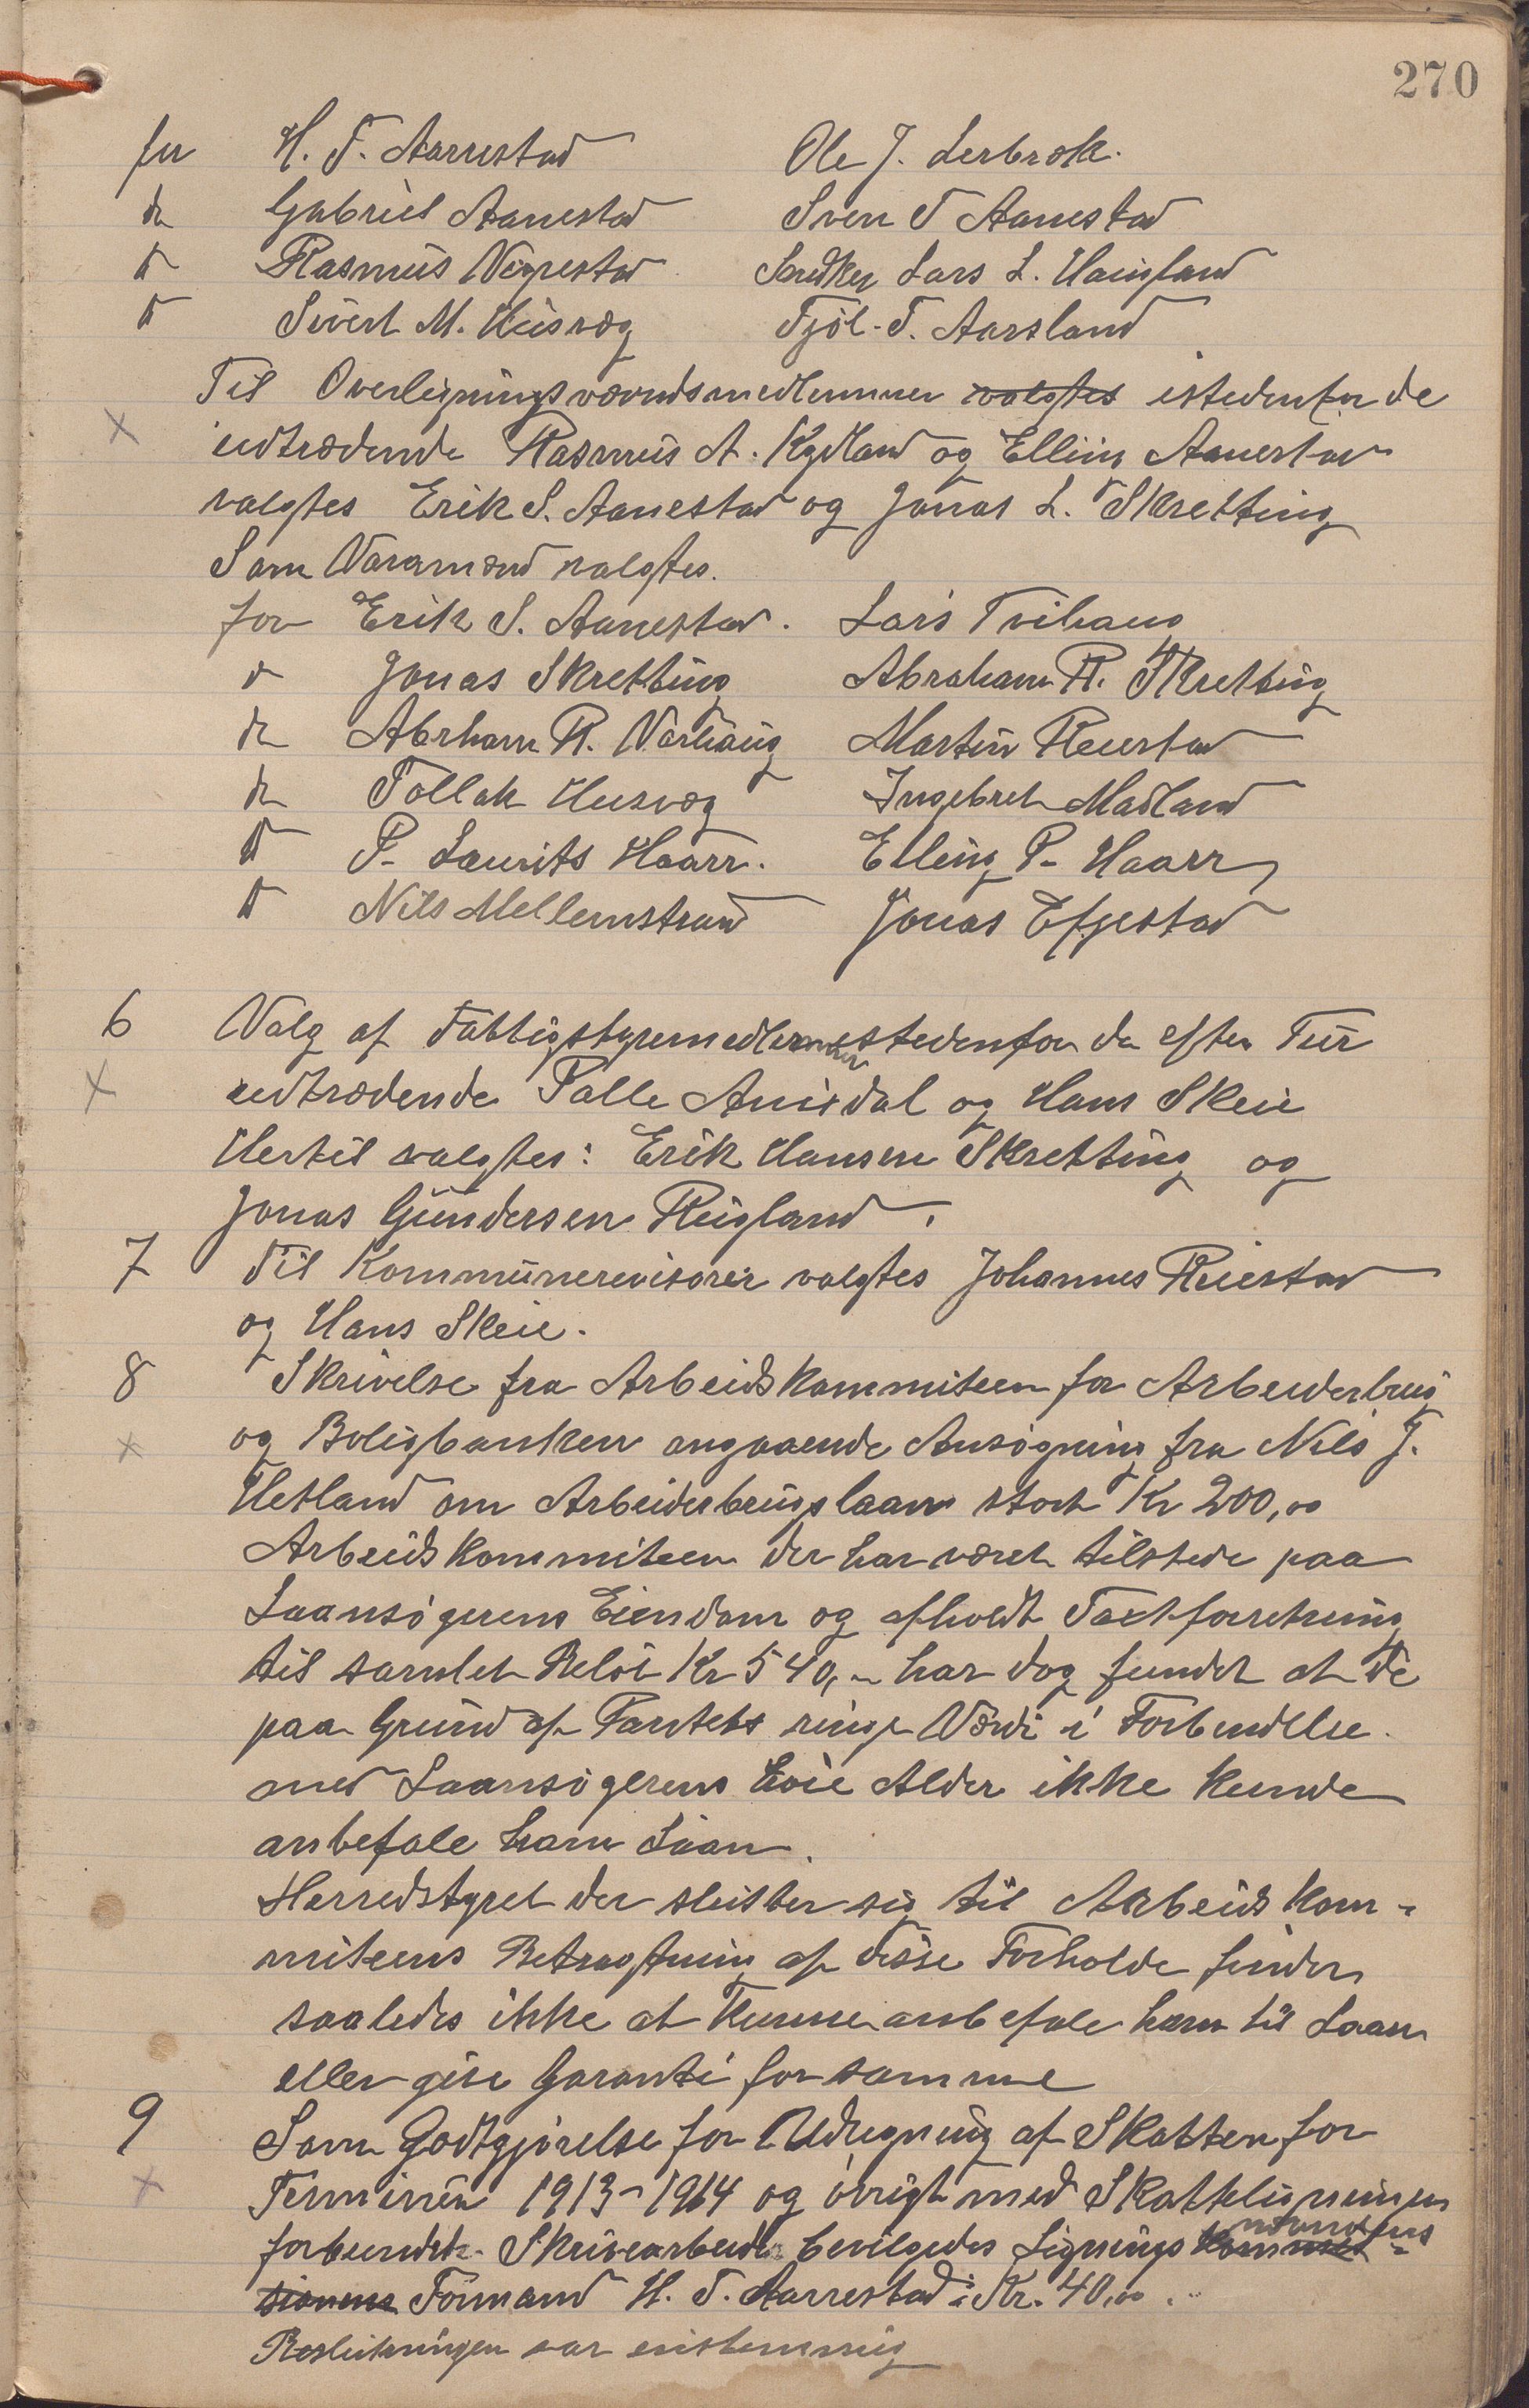 270
for H. T. Aarrestad Ole J. Lerbræk.
do Gabriel Aanestad Sven T Aanestad
do Rasmus Vigrestad Lars L. Haugland
do Sivert M. Husvæg Tjøl. T. Aarsland
Til Overligningsnævndsmedlemmer valgtes istedenfor de
udtrædende Rasmus A. Kydland og Elling Aanestad
valgtes Erik S. Aanestad og Jonas L. Skretting
Som Varamænd valgtes.
for Erik S. Aanestad. Lars Tvihaug
do Jonas Skretting Abraham R. Skretting
do Abrham R. Varhaug Martin Reiestad
do Tollak Husvæg Ingebret Madland
do P. Laurits Haarr. Elling P. Haarr
do Nils Mellemstrand Jonas Efjestad
6 Valg af Fattigstyremedlemmer istedenfor de efter Tur
udtrædende Palle Amdal og Hans Skeie
Hertil valgtes: Erik Hansen Skretting og
Jonas Gundersen Reigland.
7 Til Kommunerevisorer valgtes Johannes Reiestad
og Hans Skeie.
8 Skrivelse fra Arbeidskommiteen for Arbeiderbrug
og Boligbanken angaaende Ansøgning fra Nils J.
Hetland om Arbeiderbrugslaan stort Kr 200,00
Arbeidskommiteen der har været tilstede paa
Laansøgerens Eiendom og afholdt Taxtforretning
til samlet Beløb Kr 540,- har dog fundet at de
paa Grund af Pantets ringe Værdi i Forbindelse
med Laansøgerens høie Alder ikke kunde
anbefale ham Laan.
Herredstyret der slutter sig til Arbeidskom-
miteens Betragtning af disse Forholde finder
saaledes ikke at kunne anbefale ham til Laan
eller give Garanti for samme
9 Som Godtgjørelse for Udregning af Skatten for
Terminen 1913-1914 og øvrigt med Skatteligningen
forbundet Skrivearbeide bevilgedes Lignings kommis-
nævndens
sionens Formand H. T. Aarrestad Kr. 40,00.
Beslutningen var enstemmig